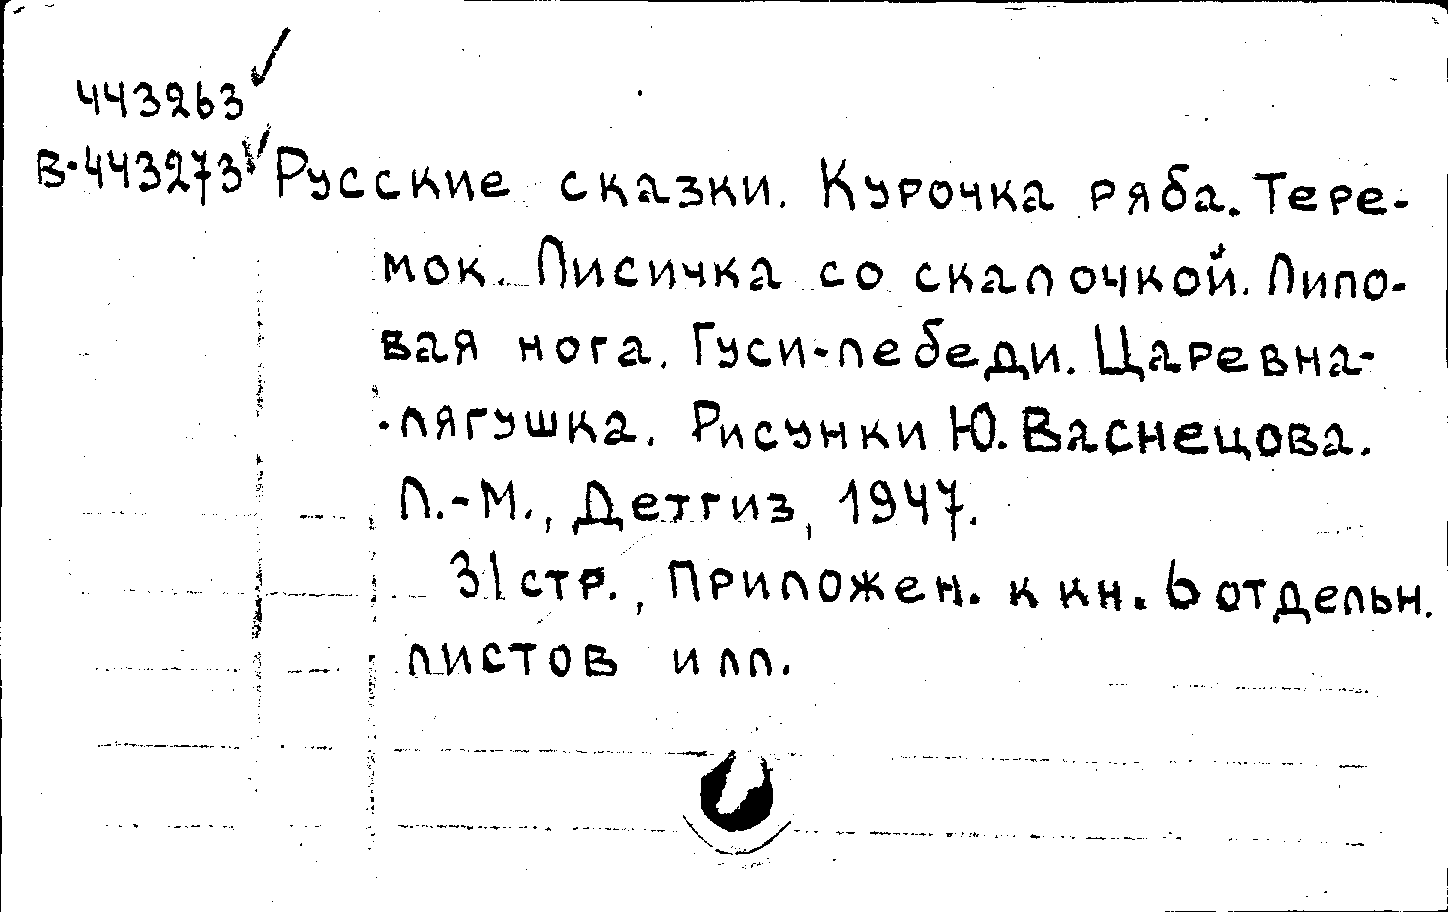 443263
В-443273 Русские сказки. Курочка ряба. Тере-
мок. Лисичка со скалочкой. Липо-
вая нога. Гуси-лебеди. Царевна-
-лягушка. Рисунки Ю. Васнецова.
Л.-М., Детгиз, 1947.
31 стр., Приложен. к кн. 6 отдельн.
листов илл.